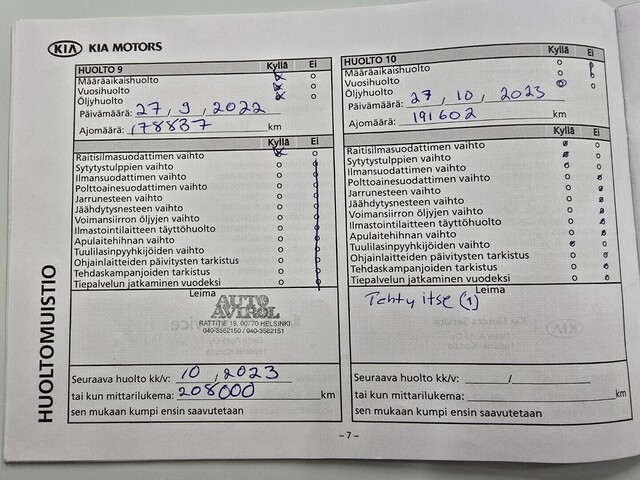 KIA KIA MOTORS
HUOLTO 9 Kyllä Ei
Määräaikaishuolto
Vuosihuolto
Öljyhuolto
Päivämäärä: 27, 9, 2022
Ajomäärä: 178837 km
Kyllä Ei
Raitisilmasuodattimen vaihto
Sytytystulppien vaihto
Ilmansuodattimen vaihto
Polttoainesuodattimen vaihto
Jarrunesteen vaihto
Jäähdytysnesteen vaihto
Voimansiirron öljyjen vaihto
Ilmastointilaitteen täyttöhuolto
Apulaitehihnan vaihto
Tuulilasinpyyhkijöiden vaihto
Ohjainlaitteiden päivitysten tarkistus
Tehdaskampanjoiden tarkistus
Tiepalvelun jatkaminen vuodeksi
Leima
AUTO
AVIROL
RATTITIE 19, 00770 HELSINKI
040-3562150 / 040-3562151
Seuraava huolto kk/v: 10, 2023
tai kun mittarilukema: 208000 km
sen mukaan kumpi ensin saavutetaan
HUOLTO 10 Kyllä Ei
Määräaikaishuolto
Vuosihuolto
Öljyhuolto
Päivämäärä: 27, 10, 2023
Ajomäärä: 191602 km
Kyllä Ei
Raitisilmasuodattimen vaihto
Sytytystulppien vaihto
Ilmansuodattimen vaihto
Polttoainesuodattimen vaihto
Jarrunesteen vaihto
Jäähdytysnesteen vaihto
Voimansiirron öljyjen vaihto
Ilmastointilaitteen täyttöhuolto
Apulaitehihnan vaihto
Tuulilasinpyyhkijöiden vaihto
Ohjainlaitteiden päivitysten tarkistus
Tehdaskampanjoiden tarkistus
Tiepalvelun jatkaminen vuodeksi
Leima
Tehty itse (1)
Seuraava huolto kk/v: /
tai kun mittarilukema: km
sen mukaan kumpi ensin saavutetaan
HUOLTOMUISTIO
- 7 -